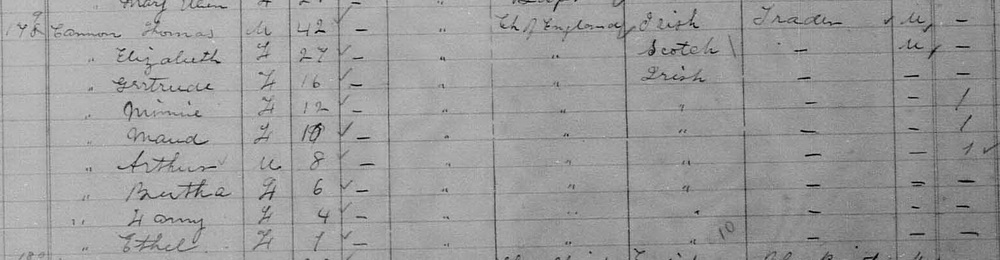 Cannon Thomas M 42 – " Ch of England Irish Trader M –
" Elizabeth F 27 – " " Scotch – M –
" Gertrude F 16 – " " Irish – – –
" Minnie F 12 – " " " – – 1
" Maud F 10 – " " " – – 1
" Arthur M 8 – " " " – – 1
" Bertha F 6 – " " " – – –
" Fanny F 4 – " " " – – –
" Ethel F 1 – " " " 10 – – –